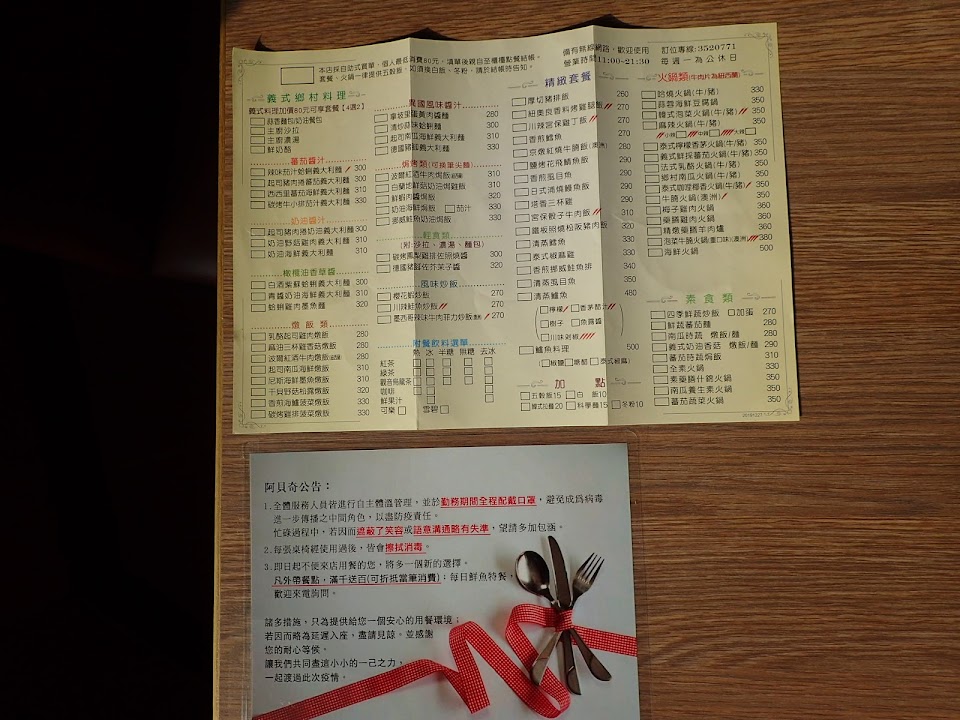 本店採自助式買單、個人最低消費80元、填單後親自至櫃檯點餐結帳。
套餐、火鍋一律提供五穀飯、如須換白飯、冬粉、請於結帳時告知。
備有無線網路、歡迎使用 訂位專線:3520771
營業時間11:00-21:30 每週一為公休日
義式鄉村料理
義式料理加價80元可享套餐【4選2】
蒜香麵包/奶油餐包
主廚沙拉
主廚濃湯
鮮奶酪
蕃茄醬汁
辣味茄汁蛤蜊義大利麵 300
起司豬肉捲蕃茄義大利麵 310
西西里蕃茄海鮮義大利麵 310
碳烤牛小排茄汁義大利麵 330
奶油醬汁
起司豬肉捲奶油義大利麵 310
奶油野菇雞肉義大利麵 310
奶油海鮮義大利麵 310
橄欖油香草醬
白酒紫蘇蛤蜊義大利麵 300
青醬奶油海鮮義大利麵 310
蛤蜊雞肉墨魚麵 320
燉飯類
乳酪起司雞肉燉飯 280
麻油三杯雞香菇燉飯 280
波爾紅酒牛肉燉飯 280
起司南瓜海鮮燉飯 310
尼斯海鮮墨魚燉飯 310
干貝野菇松露燉飯 310
香煎海鱸菠菜燉飯 330
碳烤雞排菠菜燉飯 330
異國風味醬汁
拿坡里蛋黃肉醬麵 280
清炒蒜味蛤蜊麵 300
起司南瓜海鮮義大利麵 310
德國豬腳義大利麵 330
焗烤類(可換筆尖麵)
波爾紅酒牛肉焗飯 310
白蘭地鮮菇奶油焗雞飯 310
鮮蝦肉醬焗飯 320
奶油海鮮焗飯 茄汁 330
挪威鮭魚奶油焗飯 330
輕食類
(附:沙拉、濃湯、麵包)
碳烤鳳梨雞排佐照燒醬 300
德國豬腳佐芥茉子醬 320
風味炒飯
櫻花蝦炒飯 270
川辣鮭魚炒飯 270
墨西哥辣味牛肉菲力炒飯 270
附餐飲料選單
熱 冰 半糖 無糖 去冰
紅茶
綠茶
觀音烏龍茶
咖啡
鮮果汁
可樂 雪碧
精緻套餐
厚切豬排飯 260
紐奧良香料烤雞腿飯 270
川辣宮保雞丁飯 270
香煎鱈魚 270
京燉紅燒牛腩飯(澳洲) 280
鹽烤花飛鯖魚飯 290
香煎虱目魚 290
日式蒲燒鰻魚飯 290
塔香三杯雞 290
宮保骰子牛肉飯 310
鐵板照燒松阪豬肉飯 320
清蒸鱈魚 320
泰式椒麻雞 320
香煎挪威鮭魚排 340
清蒸虱目魚 350
清蒸鱸魚 480
檸檬 香茅醋汁
樹子 魚露醬
川味剁椒
鱸魚料理 500
椒鹽 糖醋 泰式椒麻
加 點
五穀飯15 白飯10
韓式拉麵20 科學麵15 冬粉10
火鍋類(牛肉片為紐西蘭)
哈燒火鍋(牛/豬) 330
蒜蓉海鮮豆腐鍋 350
韓式泡菜火鍋(牛/豬) 350
麻辣火鍋(牛/豬) 350
小辣 中辣 大辣
泰式檸檬香茅火鍋(牛/豬) 350
義式鮮採蕃茄火鍋(牛/豬) 350
法式乳酪火鍋(牛/豬) 350
鄉村南瓜火鍋(牛/豬) 350
泰式咖哩椰香火鍋(牛/豬) 350
牛腩火鍋(澳洲) 350
梅子雞肉火鍋 360
藥膳雞肉火鍋 360
精燉藥膳羊肉爐 360
泡菜牛腩火鍋(重口味)(澳洲) 380
海鮮火鍋 500
素食類
四季鮮蔬炒飯 加蛋 270
鮮蔬蕃茄麵 280
南瓜時蔬 燉飯/麵 280
義式奶油香菇 燉飯/麵 290
蕃茄時蔬焗飯 310
全素火鍋 330
素藥膳什錦火鍋 350
南瓜養生素火鍋 350
蕃茄蔬菜火鍋 350
阿貝奇公告：
1.全體服務人員皆進行自主體溫管理，並於勤務期間全程配戴口罩，避免成為病毒
進一步傳播之中間角色，以盡防疫責任。
忙碌過程中，若因而遮蔽了笑容或語意溝通略有失準，望請多加包涵。
2.每張桌椅經使用過後，皆會擦拭消毒。
3.即日起不便來店用餐的您，將多一個新的選擇。
凡外帶餐點，滿千送百(可折抵當筆消費)；每日鮮魚特餐，
歡迎來電詢問。
諸多措施，只為提供給您一個安心的用餐環境；
若因而略為延遲入座，盡請見諒。並感謝
您的耐心等候。
讓我們共同盡這小小的一己之力，
一起渡過此次疫情。